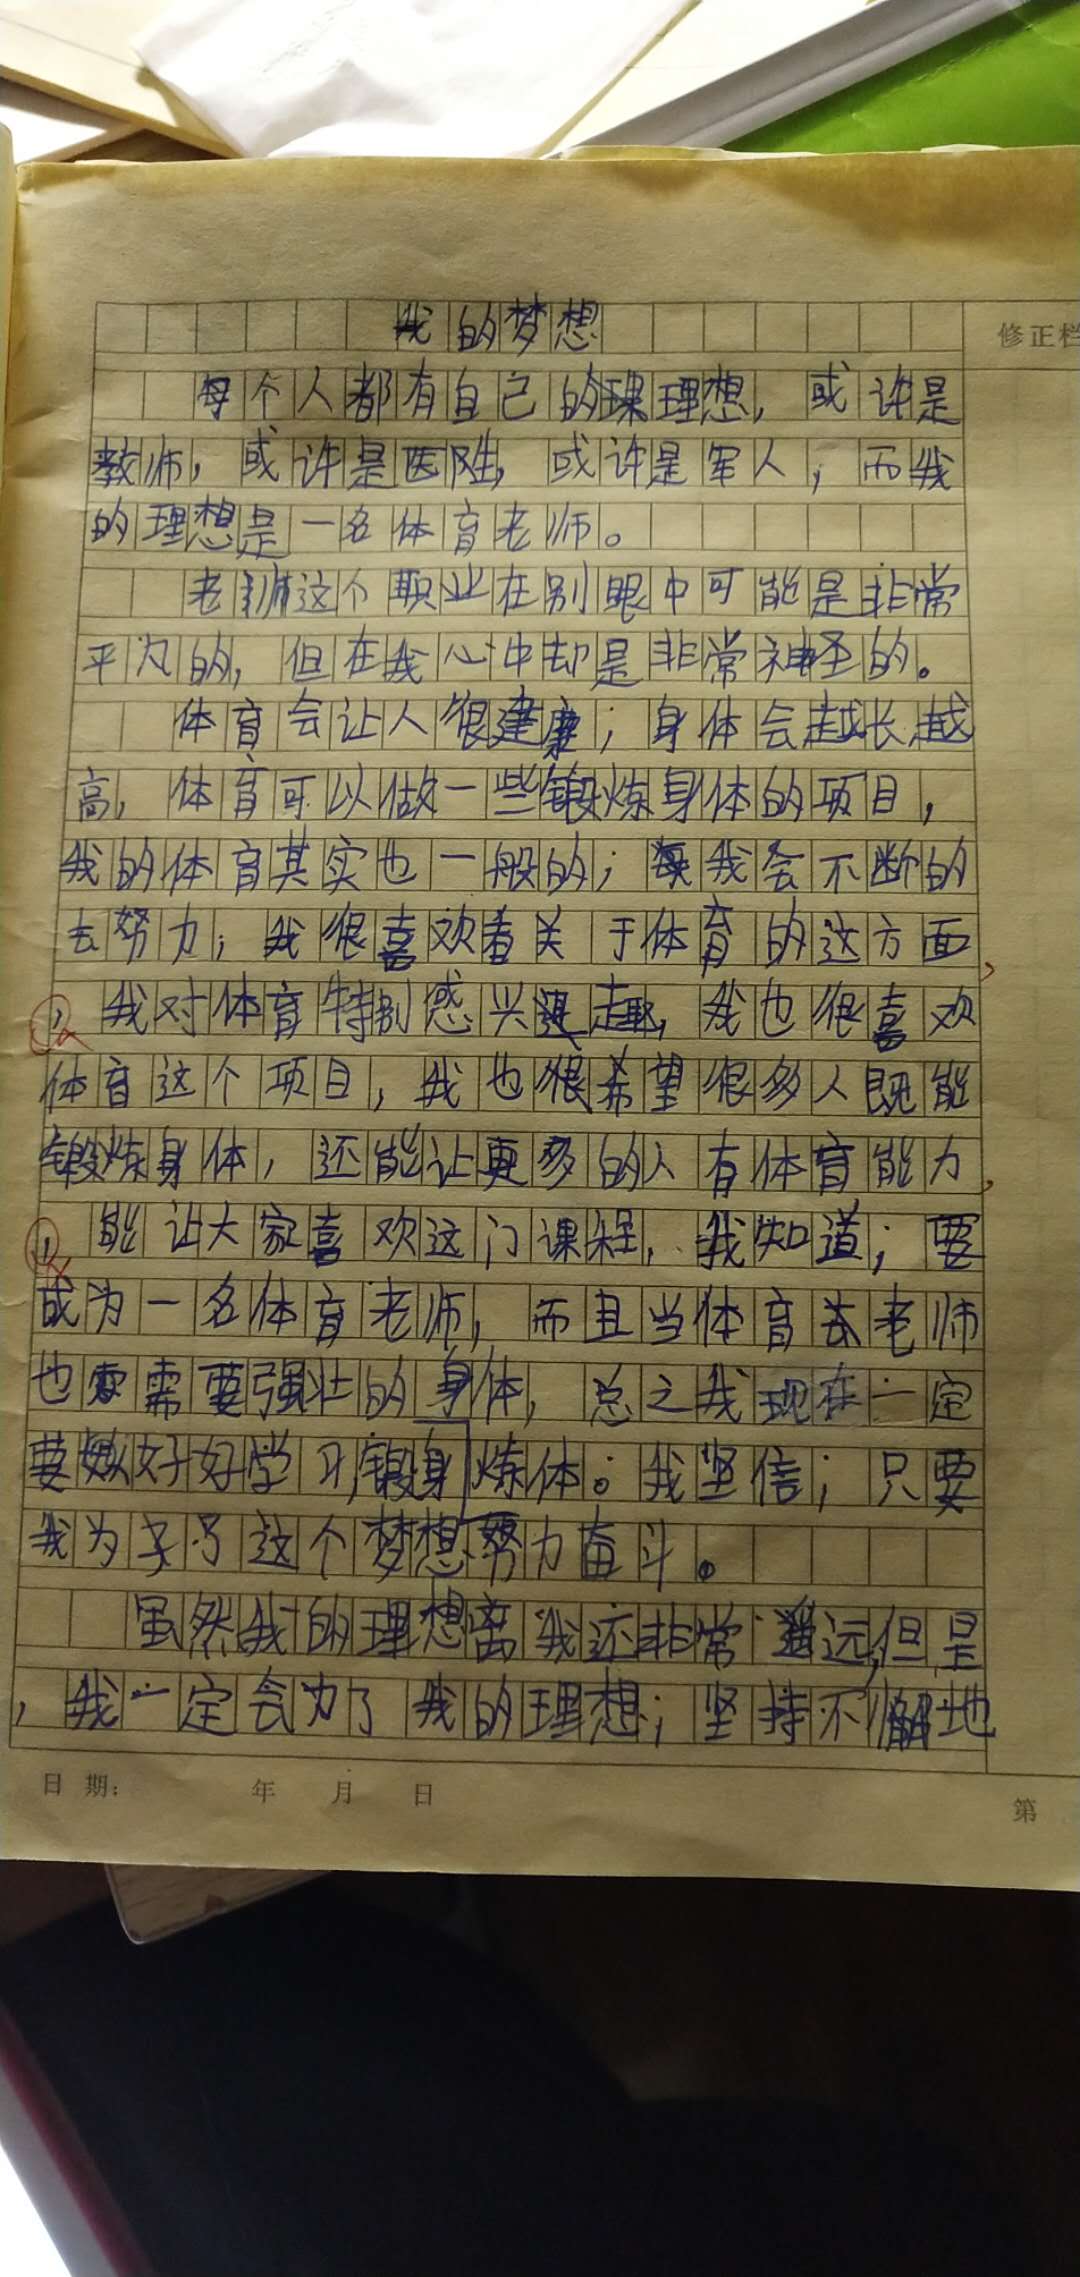 我的梦想
修正栏
每个人都有自己的理想，或许是
教师，或许是医生，或许是军人，而我
的理想是一名体育老师。
老师这个职业在别眼中可能是非常
平凡的，但在我心中却是非常神圣的。
体育会让人很建康；身体会越长越
高，体育可以做一些锻炼身体的项目，
我的体育其实也一般的；我会不断的
去努力；我很喜欢看关于体育的这方面
，我对体育特别感兴趣，我也很喜欢
体育这个项目，我也很希望很多人既能
锻炼身体，还能让更多的人有体育能力
，能让大家喜欢这门课程，我知道；要
成为一名体育老师，而且当体育老师
也需要强壮的身体，总之我现在一定
要好好学习，锻身炼体。我坚信；只要
我为了这个梦想努力奋斗。
虽然我的理想离我还非常遥远，但是
，我一定会为了我的理想；坚持不懈地
日期： 年 月 日
第